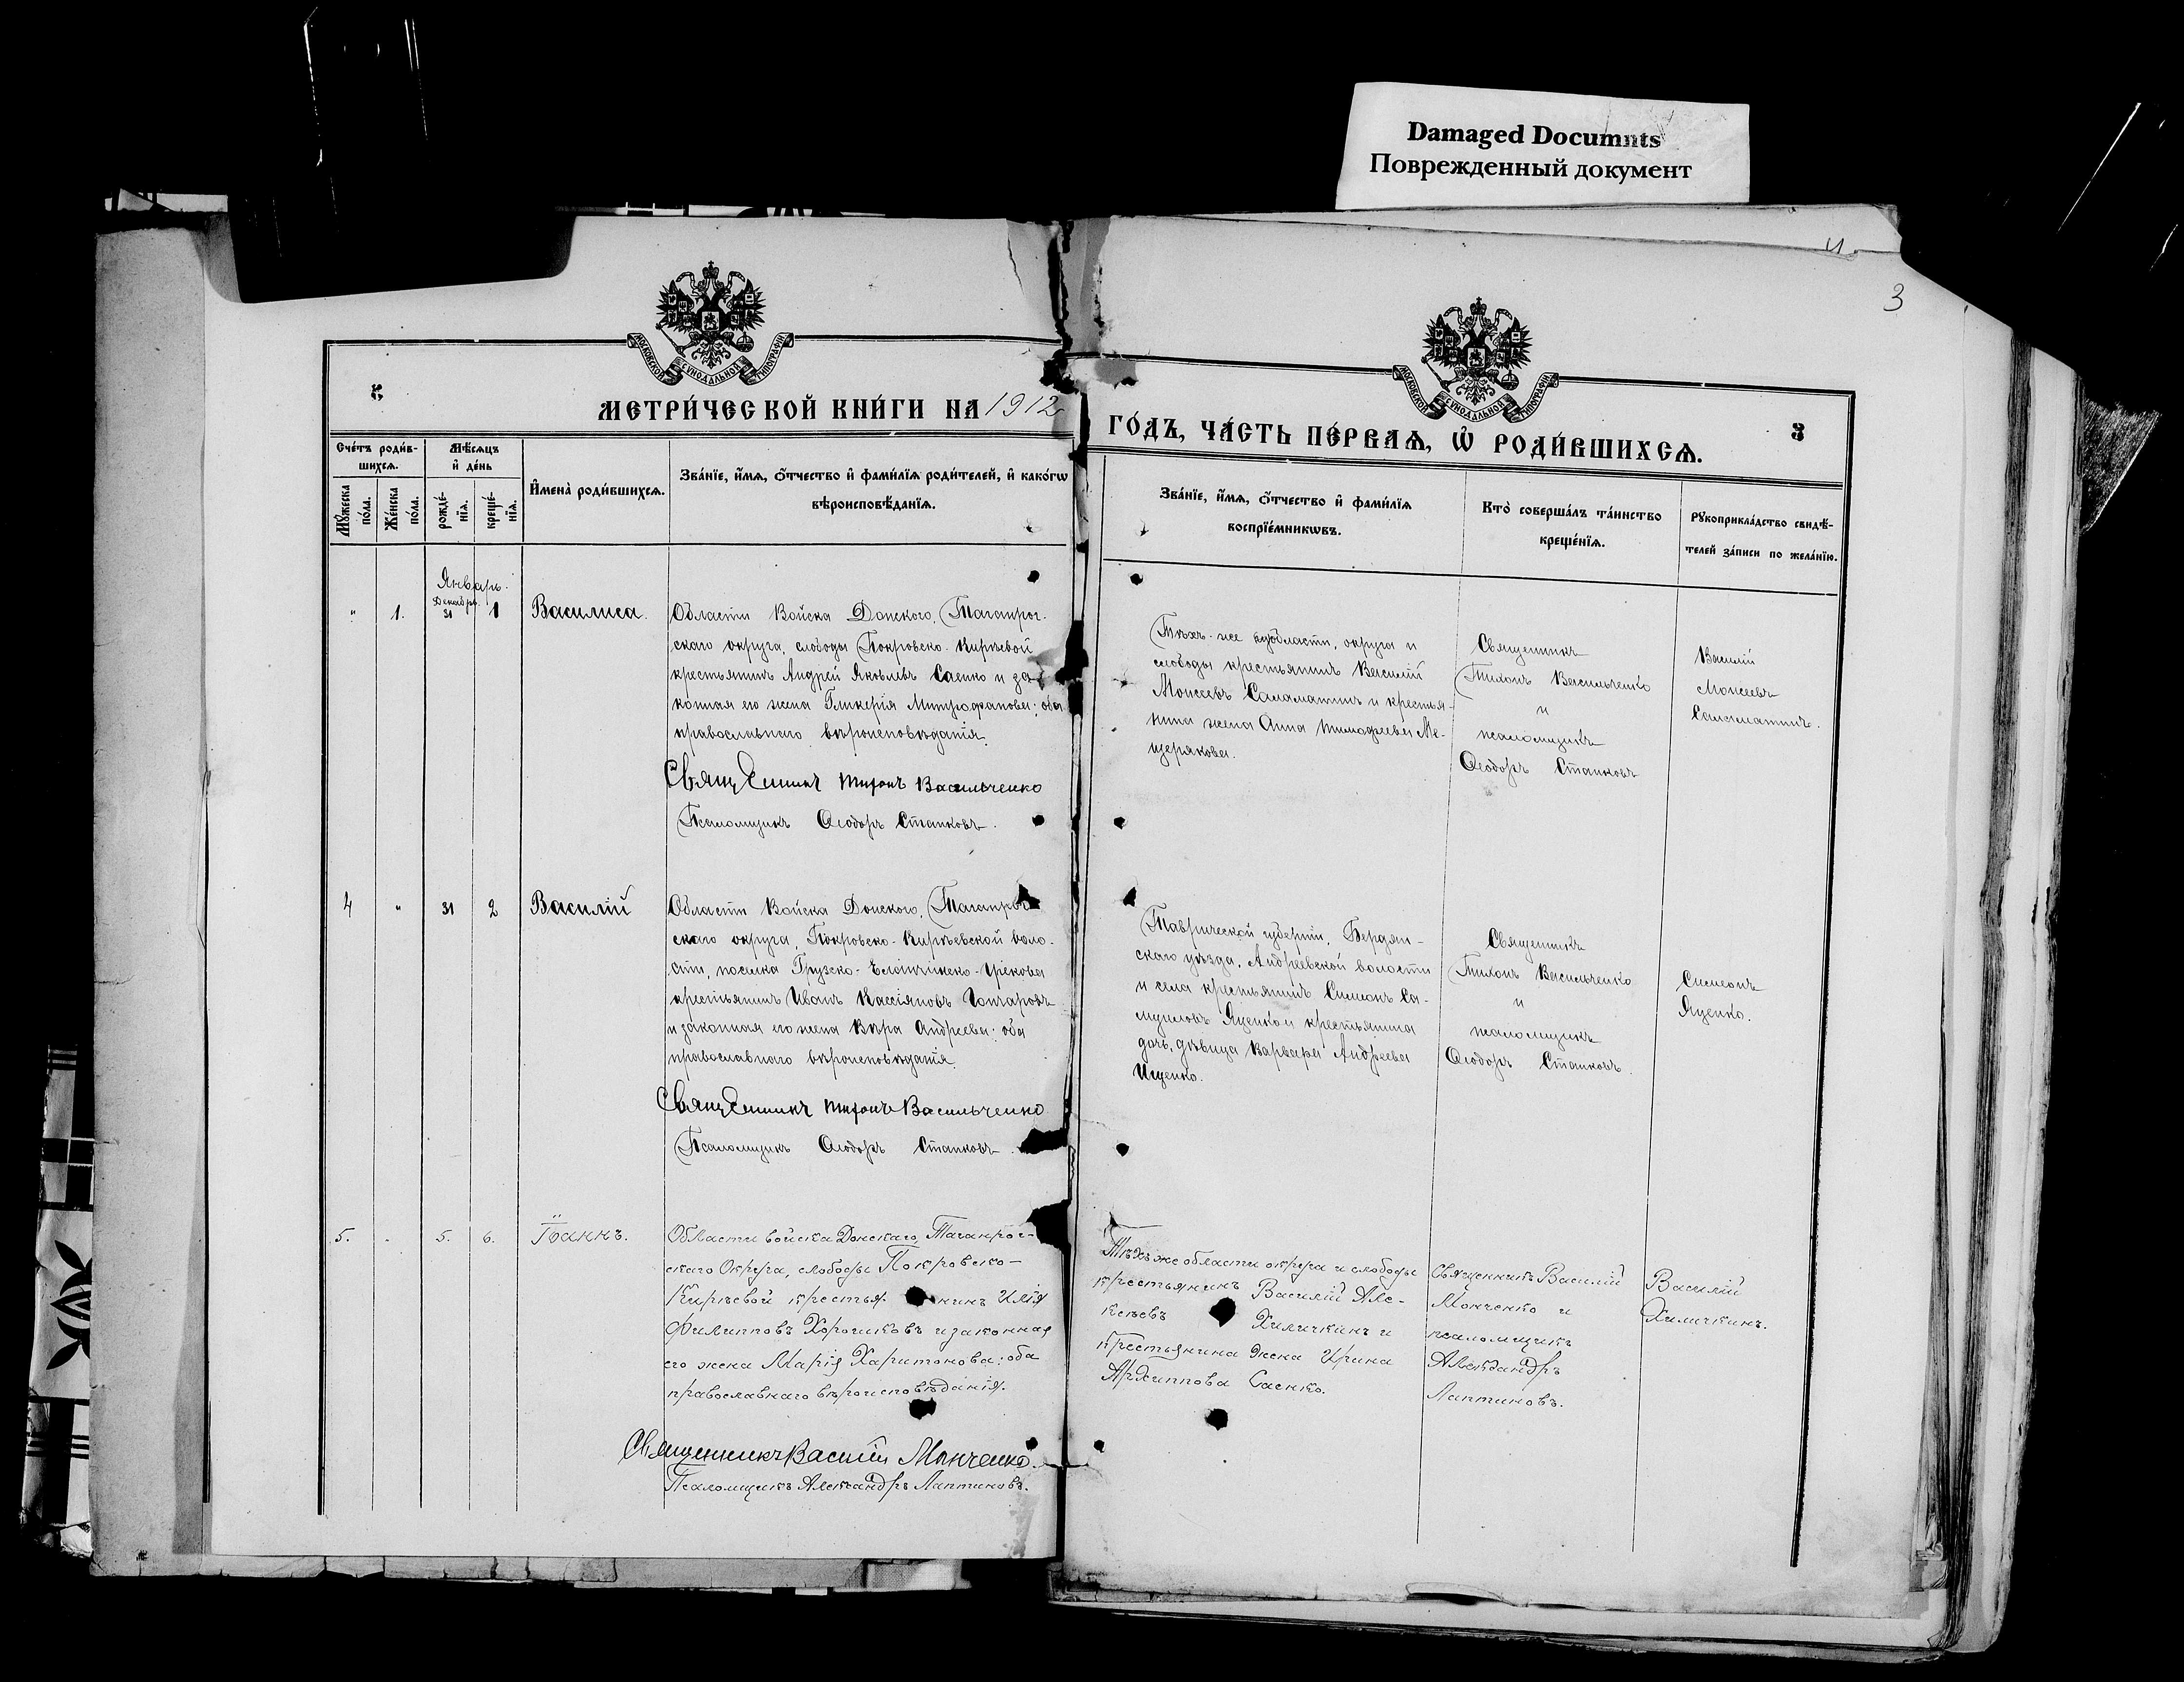 Damaged Documnts
Поврежденный документ
3
МОСКОВСКОЙ СѴНОДАЛЬНОЙ ТИПОГРАФІИ
МОСКОВСКОЙ СѴНОДАЛЬНОЙ ТИПОГРАФІИ
МЕТРИ́ЧЕСКОЙ КНИ́ГИ НА 1912
ГО́ДЪ, ЧА́СТЬ ПЕ́РВАѦ, Ѡ҆ РОДИ́ВШИХСѦ.
З
Сче́тъ роди́в-
шихсѧ.
Мꙋ́жеска по́ла.
Же́нска по́ла.
Мѣ́сѧцъ
и҆ де́нь
рожде́-
нїѧ.
креще́-
нїѧ.
И҆мена̀ роди́вшихсѧ.
Зва́нїе, и҆́мѧ, ѻ҆́тчество и҆ фами́лїѧ роди́телей, и҆ како́гѡ
вѣроисповѣ́данїѧ.
Зва́нїе, и҆́мѧ, ѻ҆́тчество и҆ фами́лїѧ
воспрїе́мникѡвъ.
Кто̀ соверша́лъ та́инство
креще́нїѧ.
Рꙋкоприкла́дство свидѣ́-
телей за́писи по жела́нїю.
Январь.
Декабрь.
" 1. 31 1 Василиса.
Области Войска Донского, Таганрог-
скаго округа, слободы Покровско-Кирѣевой
крестьянинъ Андрей Яковлевъ Саенко и за-
конная его жена Гликерія Митрофанова; оба
православнаго вѣроисповѣданія.
Священникъ Тихонъ Васильченко
Псаломщикъ Ѳеодоръ Станковъ.
Тѣхъ-же области, округа и
слободы крестьянинъ Василій
Моисеевъ Саламатинъ и крестья-
нина жена Анна Тимофеева Ме-
щерякова.
Священникъ
Тихонъ Васильченко
и
псаломщикъ
Ѳеодоръ Станковъ
Василій
Моисеевъ
Саламатинъ.
4 " 31 2 Василій
Области Войска Донского, Таганрог-
скаго округа, Покровско-Кирѣевской воло-
сти, поселка Грузско-Еланчинско-Грекова
крестьянинъ Иванъ Кассіяновъ Гончаровъ
и законная его жена Вѣра Андреева; оба
православнаго вѣроисповѣданія.
Священникъ Тихонъ Васильченко
Псаломщикъ Ѳеодоръ Станковъ.
Таврической губерніи, Бердян-
скаго уѣзда, Андреевской волости
и села крестьянинъ Симеонъ Са-
муиловъ Яценко и крестьянина
дочь, дѣвица Варвара Андреева
Ищенко.
Священникъ
Тихонъ Васильченко
и
псаломщикъ
Ѳеодоръ Станковъ.
Симеонъ
Яценко.
5. 5. 6. Іоаннъ.
Области войска Донскаго, Таганрог-
скаго Округа, слободы Покровско-
Кирѣевой крестья- нинъ Илія
Филипповъ Хорошковъ и законная
его жена Марія Харитонова; оба
православнаго вѣроисповѣданія.
Священникъ Василій Монченко.
Псаломщикъ Александръ Лаптиновъ.
Тѣхъ же области округа и слободы
крестьянинъ Василій Але-
ксѣевъ Химичкинъ и
крестьянина жена Ирина
Архиппова Саенко.
Священникъ Василій
Монченко и
псаломщикъ
Александръ
Лаптиновъ.
Василій
Химичкинъ.